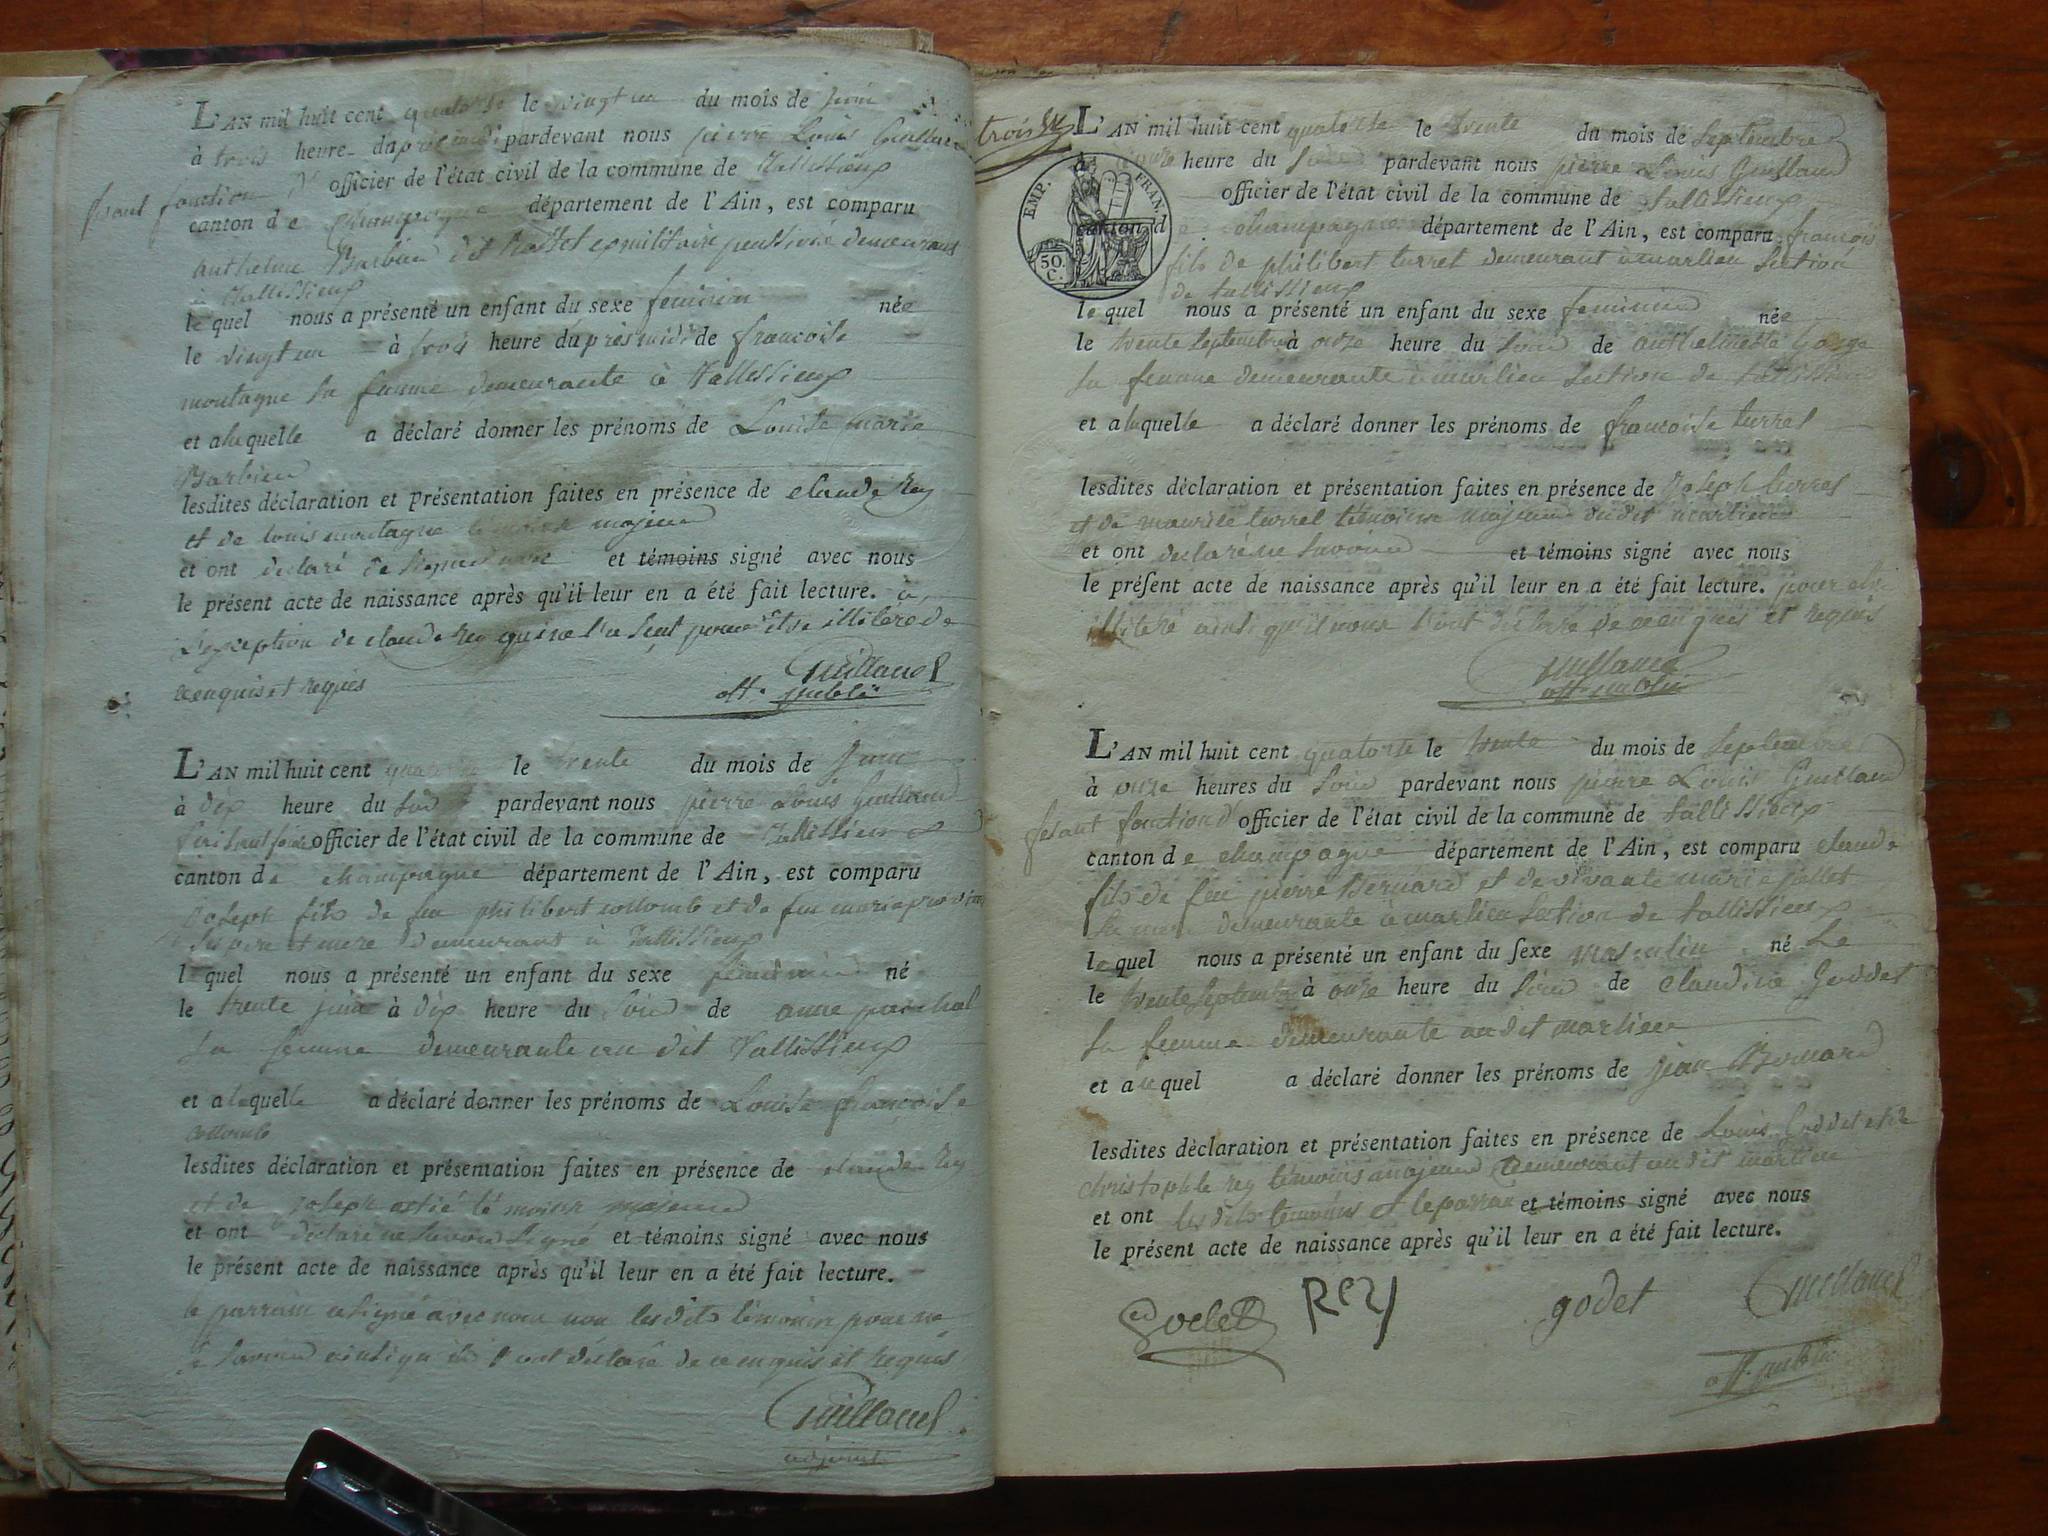 L'AN mil huit cent quatorze le vingt un du mois de juin
à trois heure du près midi pardevant nous pierre Louis Guilland
fesant fonction d' officier de l'état civil de la commune de Tallissieux
canton de Champagne département de l'Ain, est comparu
anthelme Barbier dit exmilitaire pensionné demeurant
à Tallissieux
le quel nous a présenté un enfant du sexe feminin née
le vingt un à trois heure du près midi de francoise
montagne sa femme demeurante à Tallissieux
et alaquelle a déclaré donner les prénoms de Louise marie
Barbier
lesdites déclaration et présentation faites en présence de claude Rey
et de louis montagne témoins majeur
et ont declaré de et témoins signé avec nous
le présent acte de naissance après qu'il leur en a été fait lecture. à
l'exception de claude Rey qui ne l'a seut pour être illiteré de
ce enquis et requis
Guilland
off. public
L'AN mil huit cent quatorze le trente du mois de juin
à dix heure du soir pardevant nous pierre Louis Guilland
officier de l'état civil de la commune de Tallissieux
canton de champagne département de l'Ain, est comparu
Joseph fils de feu philibert collomb et de feu marie
ses pere et mere demeurant à Tallissieux
le quel nous a présenté un enfant du sexe feminin né
le trente juin à dix heure du soir de anne
sa femme demeurante au dit Tallissieux
et alaquelle a déclaré donner les prénoms de Louise francoise
collomb
lesdites déclaration et présentation faites en présence de claude Rey
et de joseph témoins majeur
et ont déclaré ne savoir signé et témoins signé avec nous
le présent acte de naissance après qu'il leur en a été fait lecture.
le parrain a signé avec nous non lesdits témoins pour ne
le savoir ainsi qu'ils l'ont déclaré de ce enquis et requis
Guilland
adjoint
trois
EMP. FRAN.
50. C.
L'AN mil huit cent quatorze le trente du mois de Septembre
à onze heure du soir pardevant nous pierre Louis Guilland
officier de l'état civil de la commune de Tallissieux
canton de champagne département de l'Ain, est comparu francois
fils de philibert turrel demeurant à marlieu section
de tallissieux
le quel nous a présenté un enfant du sexe feminin née
le trente Septembre à onze heure du soir de anthelmette
sa femme demeurante à marlieu section de tallissieux
et alaquelle a déclaré donner les prénoms de francoise turrel
lesdites déclaration et présentation faites en présence de Joseph
et de maurice turrel témoins majeur dudit marlieu
et ont declaré ne savoir et témoins signé avec nous
le présent acte de naissance après qu'il leur en a été fait lecture. pour etre
illiteré ainsi qu'il nous l'ont declaré de ce enquis et requis
Guilland
off. public
L'AN mil huit cent quatorze le trente du mois de Septembre
à onze heures du soir pardevant nous pierre Louis Guilland
fesant fonction d' officier de l'état civil de la commune de tallissieux
canton de champagne département de l'Ain, est comparu claude
fils de feu pierre Bernard et de vivante marie jallet
sa mere demeurante à marlieu section de tallissieux
le quel nous a présenté un enfant du sexe masculin né le
le trente septembre à onze heure du soir de claudine Goddet
sa femme demeurante au dit marlieu
et auquel a déclaré donner les prénoms de jean Bernard
lesdites dèclaration et présentation faites en présence de Louis Goddet et de
christophle rey témoins majeur demeurant au dit marlieu
et ont les dits témoins et le parrain et témoins signé avec nous
le présent acte de naissance après qu'il leur en a été fait lecture.
Godet Rey godet Guilland
off. public